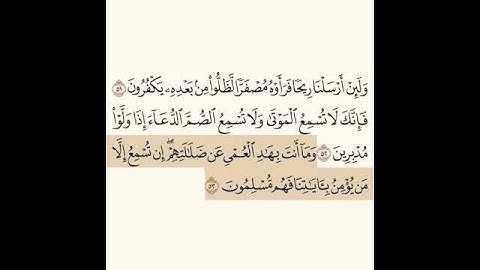 وَلَئِنْ أَرْسَلْنَا رِيحًا فَرَأَوْهُ مُصْفَرًّا لَّظَلُّوا۟ مِنۢ بَعْدِهِۦ يَكْفُرُونَ ٥١
فَإِنَّكَ لَا تُسْمِعُ الْمَوْتَىٰ وَلَا تُسْمِعُ الصُّمَّ الدُّعَآءَ إِذَا وَلَّوْا۟
مُدْبِرِينَ ٥٢ وَمَآ أَنتَ بِهَٰدِ الْعُمْىِ عَن ضَلَٰلَتِهِمْ ۖ إِن تُسْمِعُ إِلَّا
مَن يُؤْمِنُ بِـَٔايَٰتِنَا فَهُم مُّسْلِمُونَ ٥٣